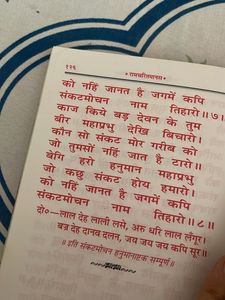 १२६
* रामचरितमानस *
को नहिं जानत है जगमें कपि
संकटमोचन नाम तिहारो॥७॥
काज किये बड़ देवन के तुम
बीर महाप्रभु देखि बिचारो।
कौन सो संकट मोर गरीब को
जो तुमसों नहिं जात है टारो॥
बेगि हरो हनुमान महाप्रभु
जो कछु संकट होय हमारो।
को नहिं जानत है जगमें कपि
संकटमोचन नाम तिहारो॥८॥
दो०—लाल देह लाली लसे, अरु धरि लाल लँगूर।
बज्र देह दानव दलन, जय जय जय कपि सूर॥
॥ इति संकटमोचन हनुमानाष्टक सम्पूर्ण॥